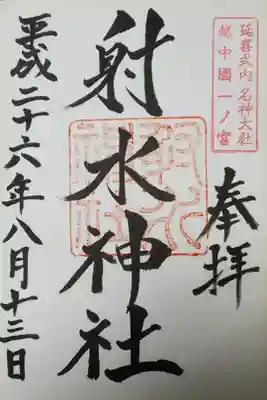 延喜式内 名神大社
越中國一ノ宮
奉拝
射水神社
平成二十六年八月十三日